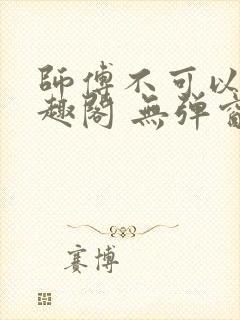 師傅不可以
趣閣 無弹窗
赛博